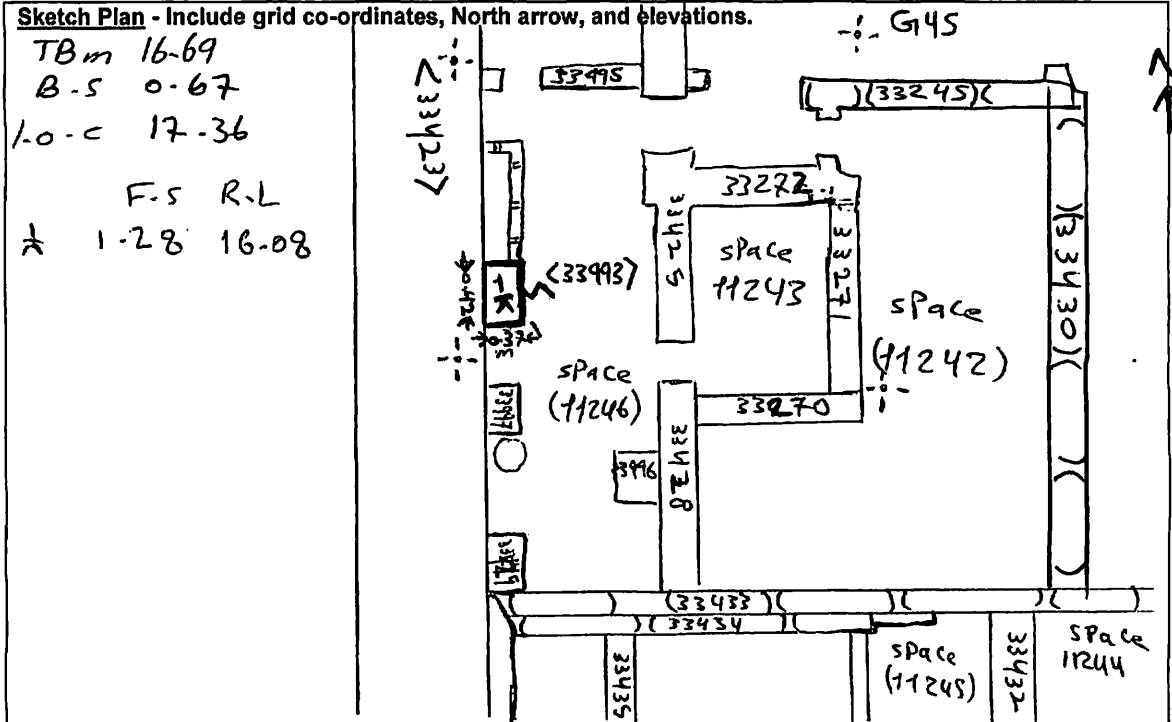 Sketch Plan - Include grid co-ordinates, North arrow, and elevations.
TBm 16-69
B-S 0-67
1-0-C 17-36
F-S R-L
1-28 16-08
G45
<33423>
33495
(33245)
33272
33425
space
11243
33271
space
(11242)
(33430)
<33993>
0.42
0.37
space
(11246)
33270
33997
3996
33428
(33433)
(33434
33435
space
(11245)
33432
space
11244